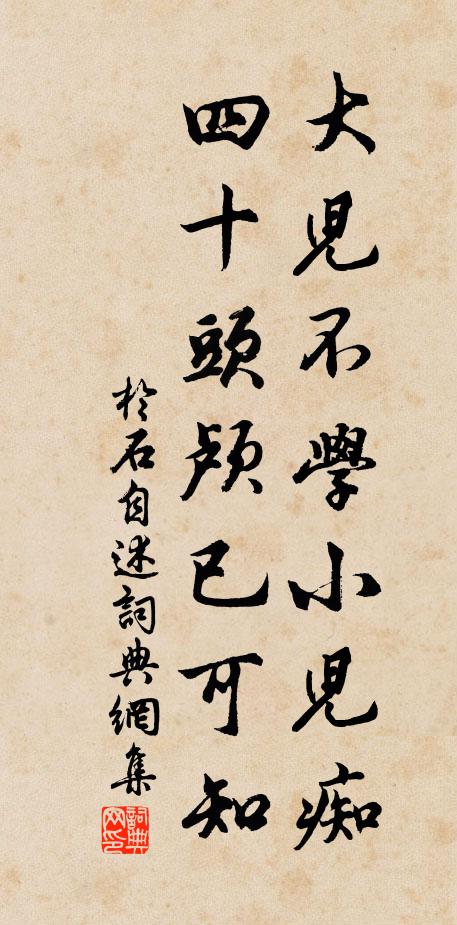 大兒不學小兒痴
四十頭顱已可知
於石自述詞典網集
詞典网印